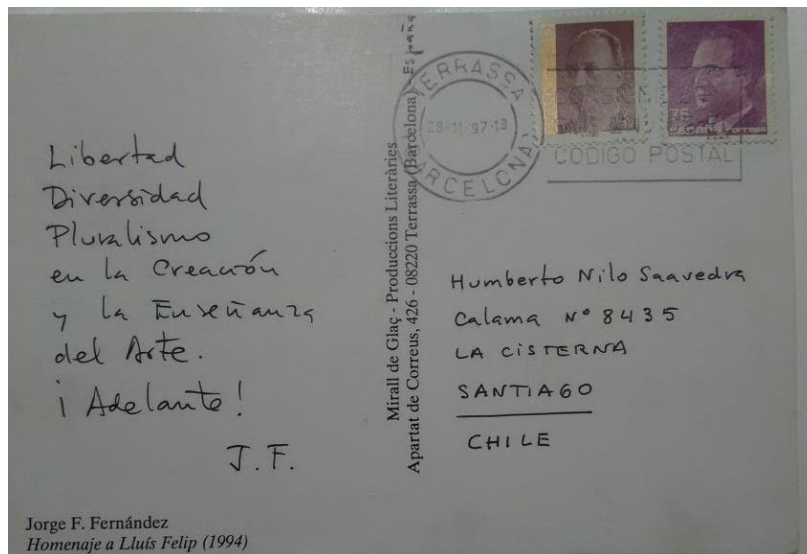 Libertad
Diversidad
Pluralismo
en la Creación
y la Enseñanza
del Arte.
¡ Adelante !
J.F.
Jorge F. Fernández
Homenaje a Lluís Felip (1994)
Mirall de Glaç - Produccions Literàries
Apartat de Correus, 426 - 08220 Terrassa (Barcelona) - España
TERRASSA
28-11-97-19
BARCELONA)
CODIGO POSTAL
ESPAÑA Correos
Humberto Nilo Saavedra
Calama Nº 8435
LA CISTERNA
SANTIAGO
CHILE